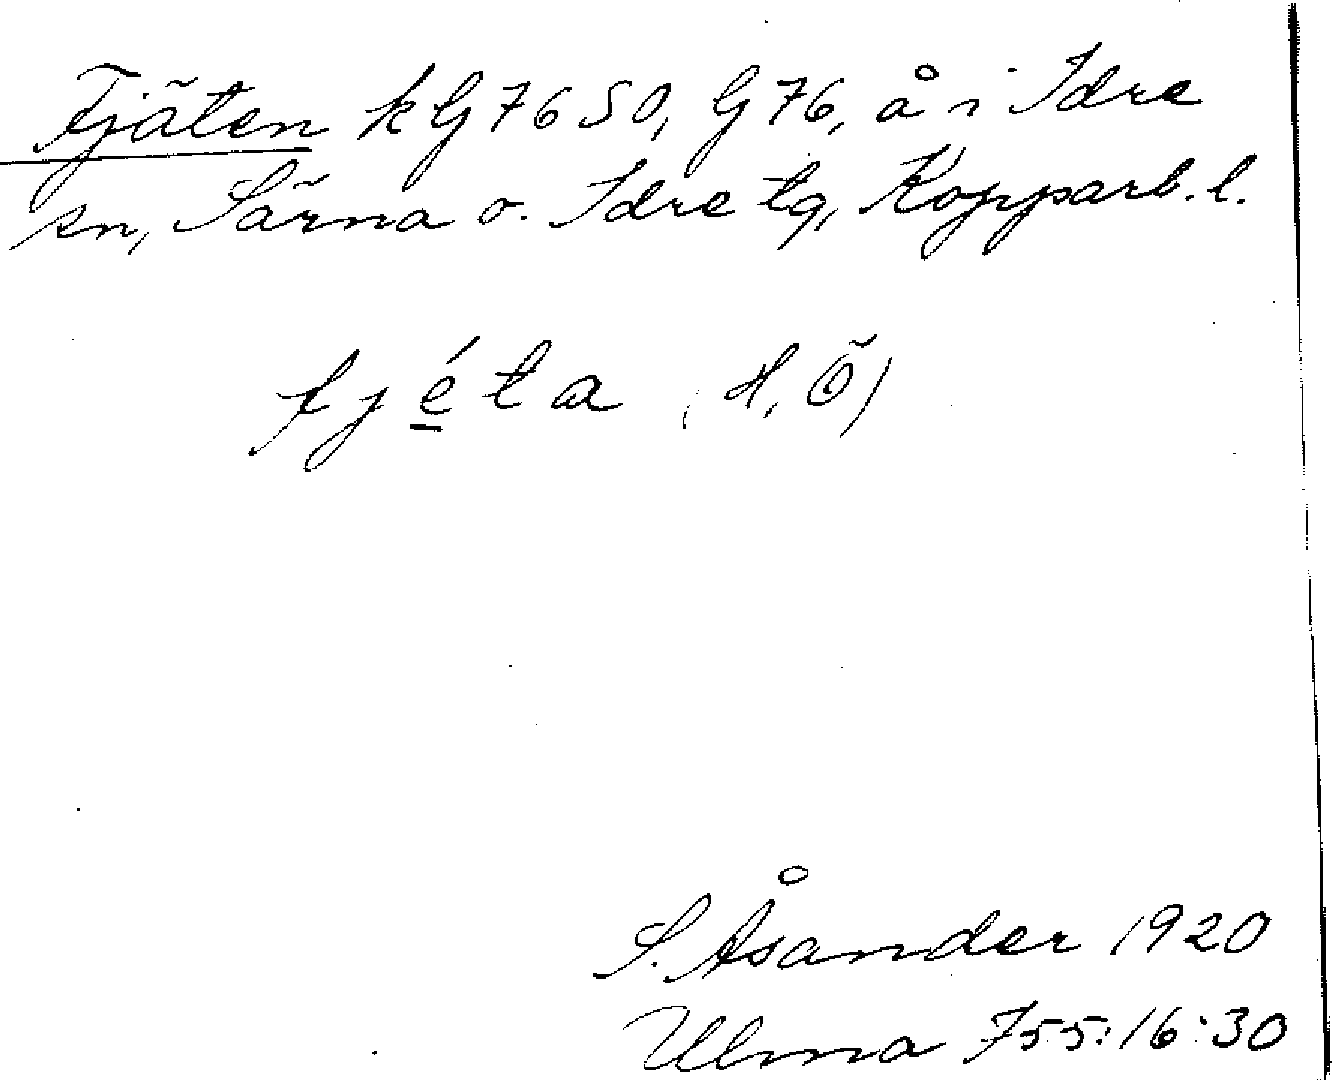 Fjäten kG7650, G76, å i Idre
sn, Särna o. Idre tg, Kopparb. l.
fjéta (H, Ö)
S. Åsander 1920
Ulma 755:16:30